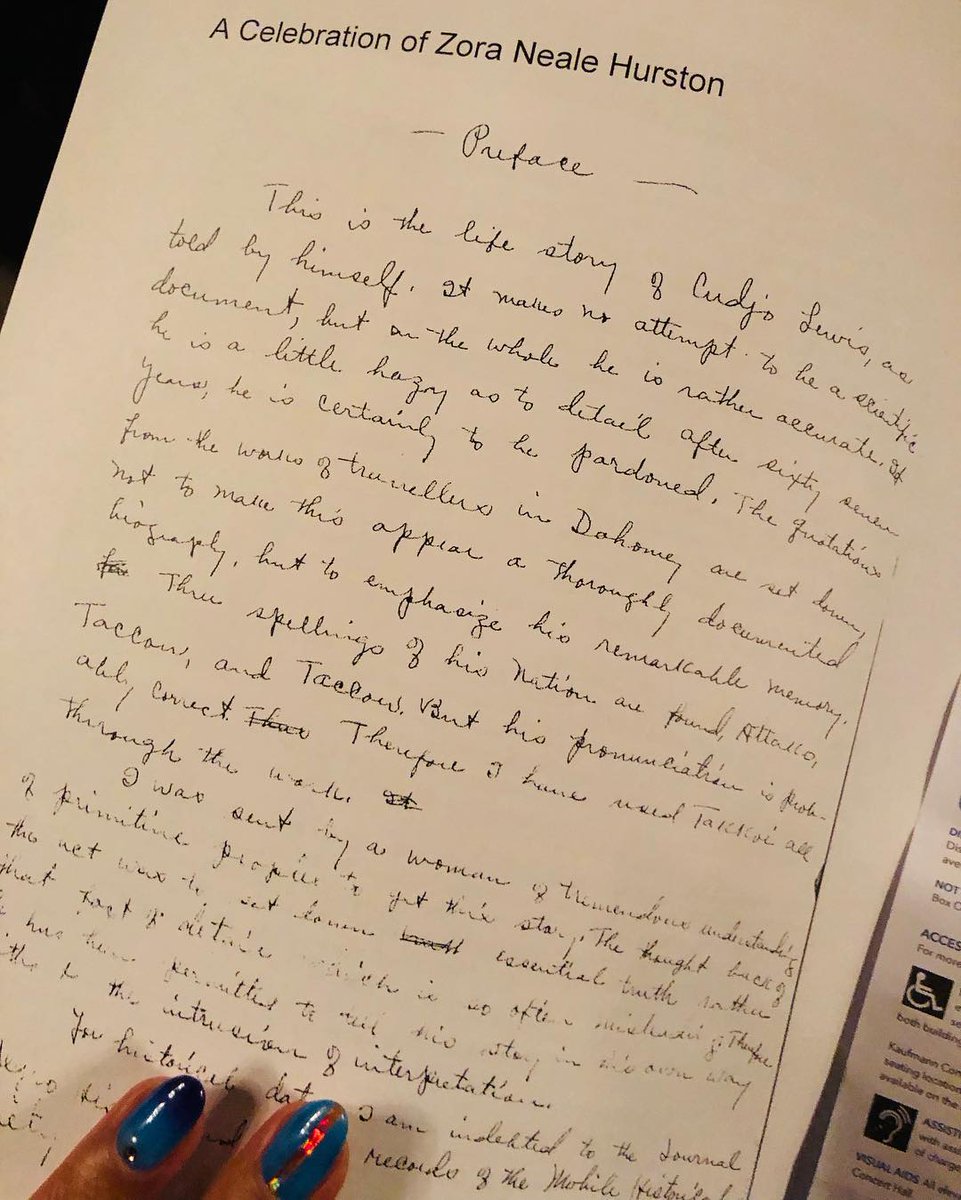 A Celebration of Zora Neale Hurston
— Preface —
This is the life story of Cudjo Lewis, as
told by himself. It makes no attempt to be a scientific
document, but on the whole he is rather accurate. If
he is a little hazy as to detail after sixty seven
years, he is certainly to be pardoned. The quotations
from the works of travellers in Dahomey are set down,
not to make this appear a thoroughly documented
biography, but to emphasize his remarkable memory.
Three spellings of his nation are found, Attako,
Taccou, and Taccow. But his pronunciation is prob-
ably correct. Therefore I have used Takkoi all
through the work.
I was sent by a woman of tremendous understanding
of primitive peoples to get this story. The thought back of
the act was to set down essential truth rather
fact of detail which is so often misleading. Therefore
he has been permitted to tell his story in his own way
the intrusion of interpretation.
For historical data I am indebted to the Journal
records of the Mobile Historical
NOT
Box
ACCES
For more
both building
Kaufmann Con
seating location
available on the
ASSISTI
with assis
of charge
VISUAL AIDS All
Concert Hall